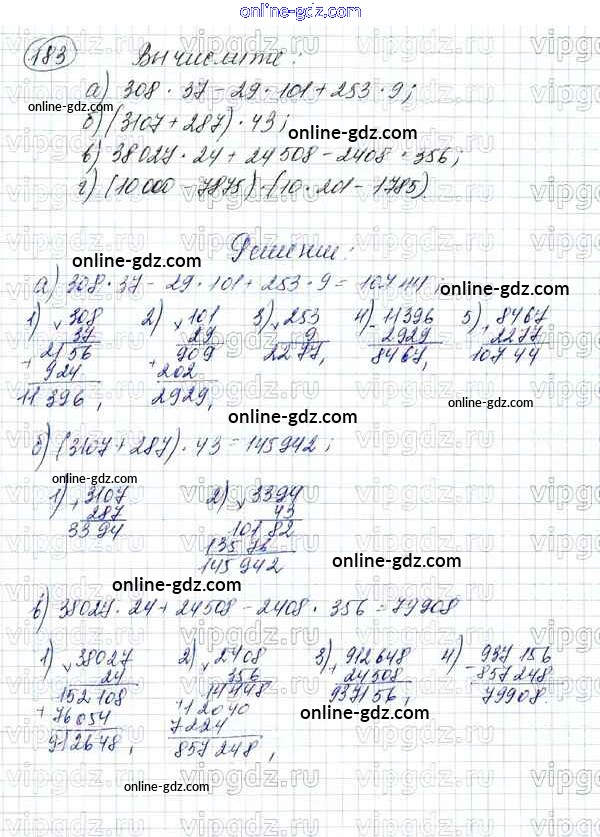 online-gdz.com
183 Вычислите:
а) 308 · 37 - 29 · 101 + 253 · 9;
online-gdz.com
б) (3107 + 287) · 43;
online-gdz.com
в) 38027 · 24 + 24508 - 2408 · 356;
г) (10 000 - 7875) · (10 · 201 - 1785).
online-gdz.com
Решение:
online-gdz.com
а) 308 · 37 - 29 · 101 + 253 · 9 = 10744;
online-gdz.com
1) × 308 2) × 101 3) × 253 4) - 11396 5) + 8467
37 29 9 2929 2277
2156 909 2277, 8467, 10744
+ 924 + 202
11396, 2929,
online-gdz.com
б) (3107 + 287) · 43 = 145942;
online-gdz.com
1) + 3107 2) × 3394
287 43
3394 10182
online-gdz.com
13576
145942
online-gdz.com
online-gdz.com
в) 38027 · 24 + 24508 - 2408 · 356 = 79908
online-gdz.com
1) × 38027 2) × 2408 3) + 912648 4) - 937156
24 356 24508 857248
152108 14448 937156, 79908.
+ 76054 + 12040
online-gdz.com
7224
912648, 857248,
online-gdz.com
online-gdz.com
online-gdz.com